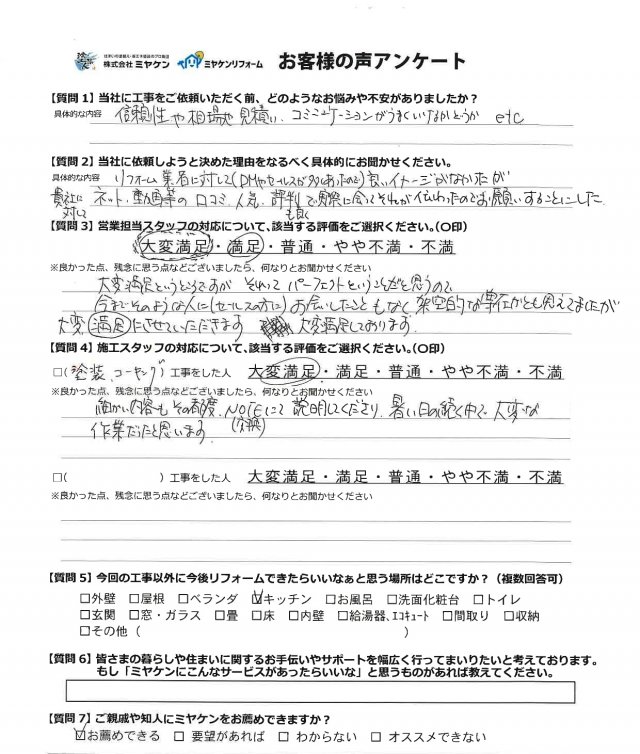 住まいの塗替え・葺き替えのプロ集団
株式会社ミヤケン ミヤケンリフォーム お客様の声アンケート
【質問1】当社に工事をご依頼いただく前、どのようなお悩みや不安がありましたか？
具体的な内容 信頼性や相場や見積い、コミュニケーションがうまくいくかどうか etc
【質問2】当社に依頼しようと決めた理由をなるべく具体的にお聞かせください。
具体的な内容 リフォーム業者に対して(DMやセールスが多くあったので)良いイメージがなかったが
貴社に対して ネット・動画等の口コミ、人気、評判も良くで実際に会ってそれが伝わったのでお願いすることにした
【質問3】営業担当スタッフの対応について、該当する評価をご選択ください。(〇印)
大変満足・満足・普通・やや不満・不満
※良かった点、残念に思う点などございましたら、何なりとお聞かせください
大変満足というところですが それって パーフェクトということだと思うので、
今までそのような人に(セールスの方に)お会いしたこともなく 架空的な存在かとも思えてましたが
大変 満足にさせていただきます 大変満足しております。
【質問4】施工スタッフの対応について、該当する評価をご選択ください。(〇印)
□( 塗装、コーキング )工事をした人 大変満足・満足・普通・やや不満・不満
※良かった点、残念に思う点などございましたら、何なりとお聞かせください
細かい内容もその都度、NOTEにて説明してくださり、暑い日の続く中で、大変な
作業だったと思います。 (交換)
□( )工事をした人 大変満足・満足・普通・やや不満・不満
※良かった点、残念に思う点などございましたら、何なりとお聞かせください
【質問5】今回の工事以外に今後リフォームできたらいいなぁと思う場所はどこですか？（複数回答可）
□外壁 □屋根 □ベランダ ☑キッチン □お風呂 □洗面化粧台 □トイレ
□玄関 □窓・ガラス □畳 □床 □内壁 □給湯器、エコキュート □間取り □収納
□その他( )
【質問6】皆さまの暮らしや住まいに関するお手伝いやサポートを幅広く行ってまいりたいと考えております。
もし「ミヤケンにこんなサービスがあったらいいな」と思うものがあれば教えてください。
【質問7】ご親戚や知人にミヤケンをお薦めできますか？
☑お薦めできる □ 要望があれば □ わからない □ オススメできない